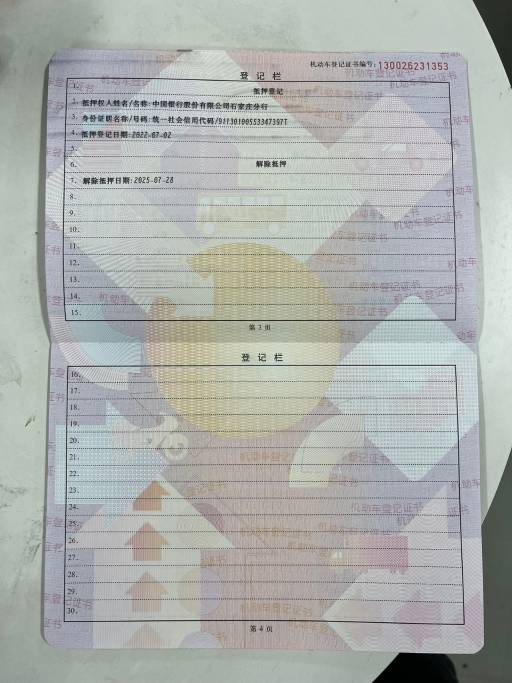 机动车登记证书编号:130026231353
登记栏
1. 抵押登记
2. 抵押权人姓名/名称:中国银行股份有限公司石家庄分行
3. 身份证明名称/号码:统一社会信用代码/91130100553347397T
4. 抵押登记日期:2022-07-02
5.
6. 解除抵押
7. 解除抵押日期:2025-07-28
8.
9.
10.
11.
12.
13.
14.
15.
第 3 页
登记栏
16.
17.
18.
19.
20.
21.
22.
23.
24.
25.
26.
27.
28.
29.
30.
第 4 页